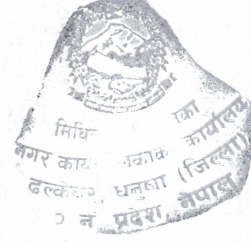 मिथि रका
नगर का कार्यालय
ढल्केवर, धनुषा (जिल्ला)
२ नं प्रदेश नेपाल